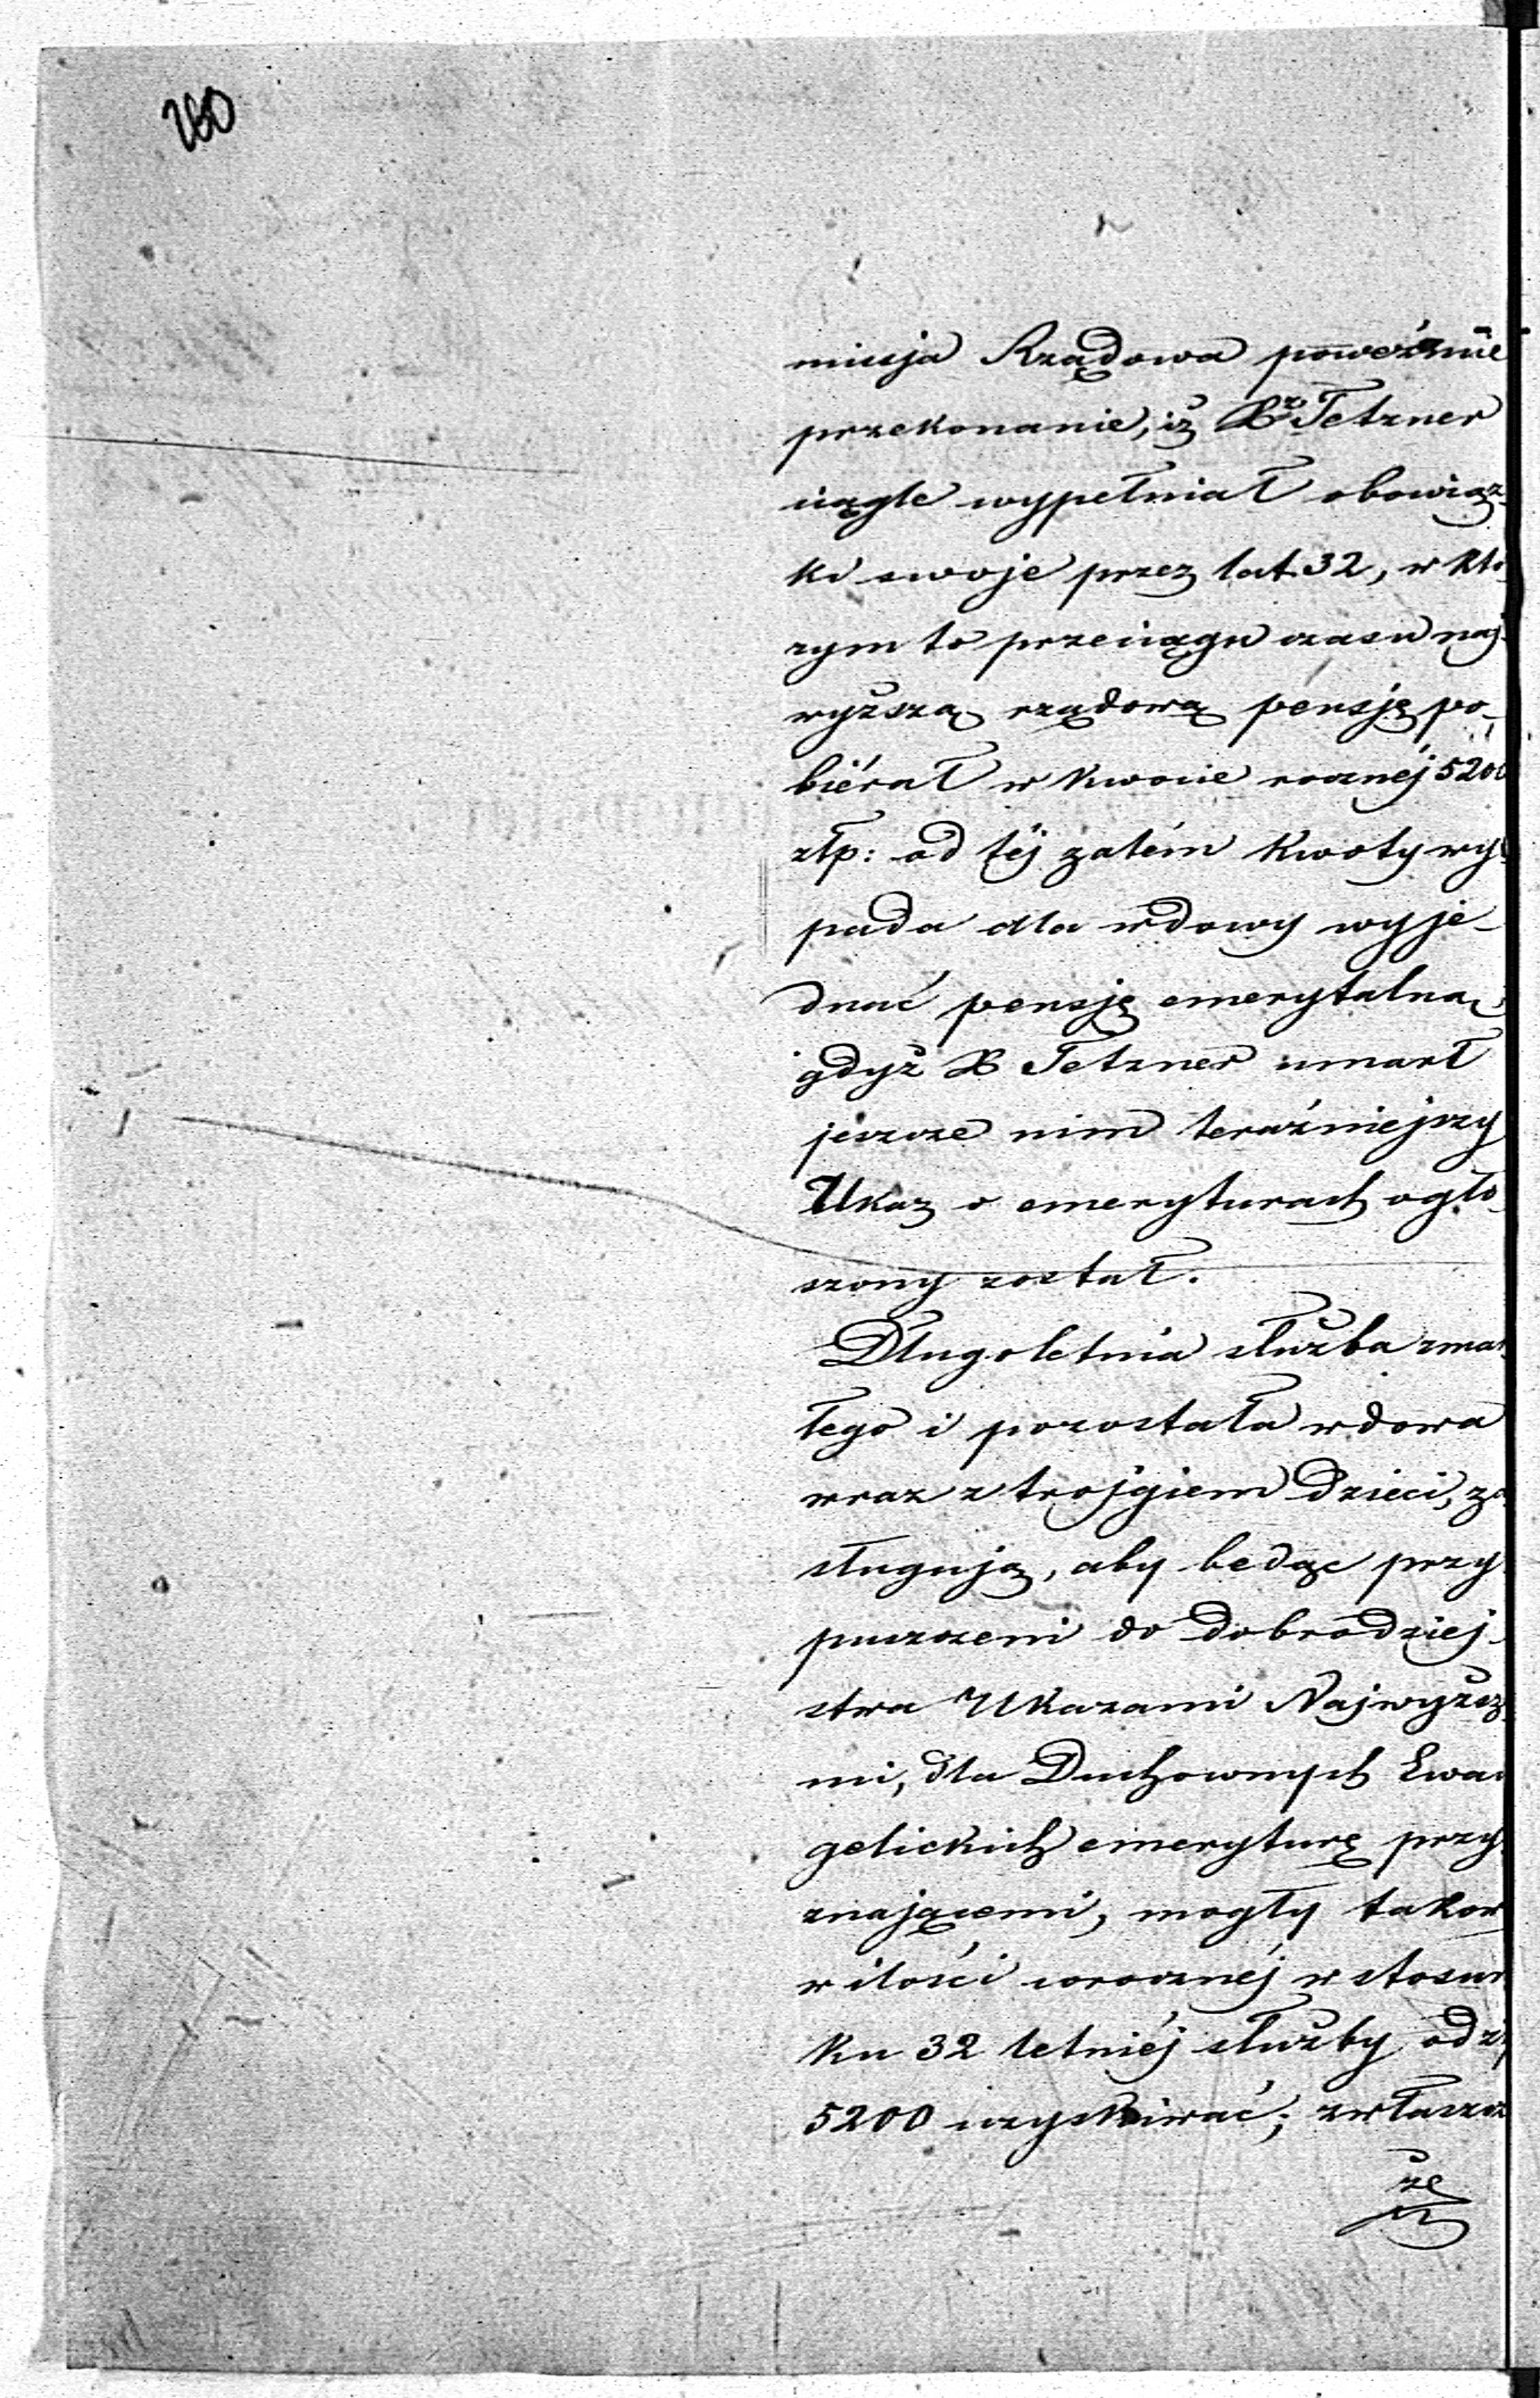 260
missja Rządowa poweźmie
przekonanie, iż X. Tetzner
ciągle wypełniał obowiąz-
ki swoje przez lat 32, w któ-
rym to przeciągu czasu naj-
wyższą rządową pensję po-
biérał w kwocie rocznéj 5200
złp: od téj zatém kwoty wy-
pada dla wdowy wyje-
dnać pensję emerytalną,
gdyż X Tetzner umarł
jeszcze nim teraźniejszy
Ukaz o emeryturach ogło-
szony został.
Długoletnia służba zmar-
łego i pozostała wdowa
wraz z trojgiem dzieci, za
sługują, aby będąc przy-
puszczeni do dobrodziej-
stwa Ukazami Najwyższ
mi, dla Duchownych Ewan
gelickich emeryturę przy-
znającemi, mogły takow
w ilości corocznéj w stosun
ku 32 letniéj służby od zł
5200 uzyskiwać; zwłaszcz
że